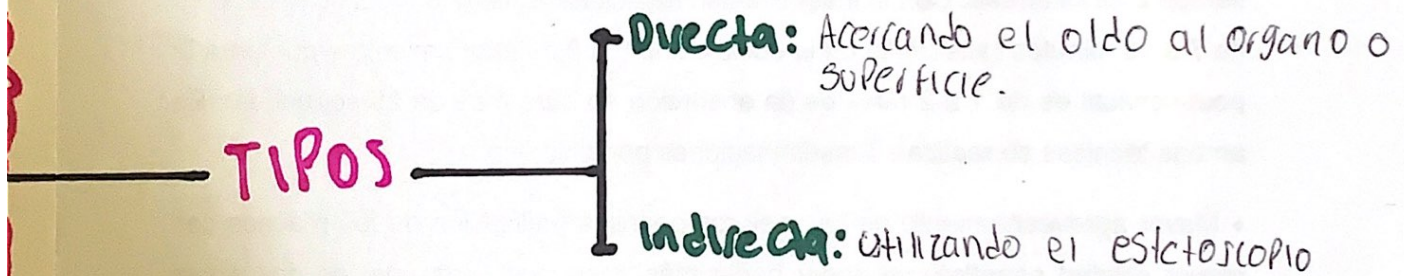 Directa: Acercando el oido al organo o
superficie.
TIPOS
Indirecta: utilizando el estetoscopio